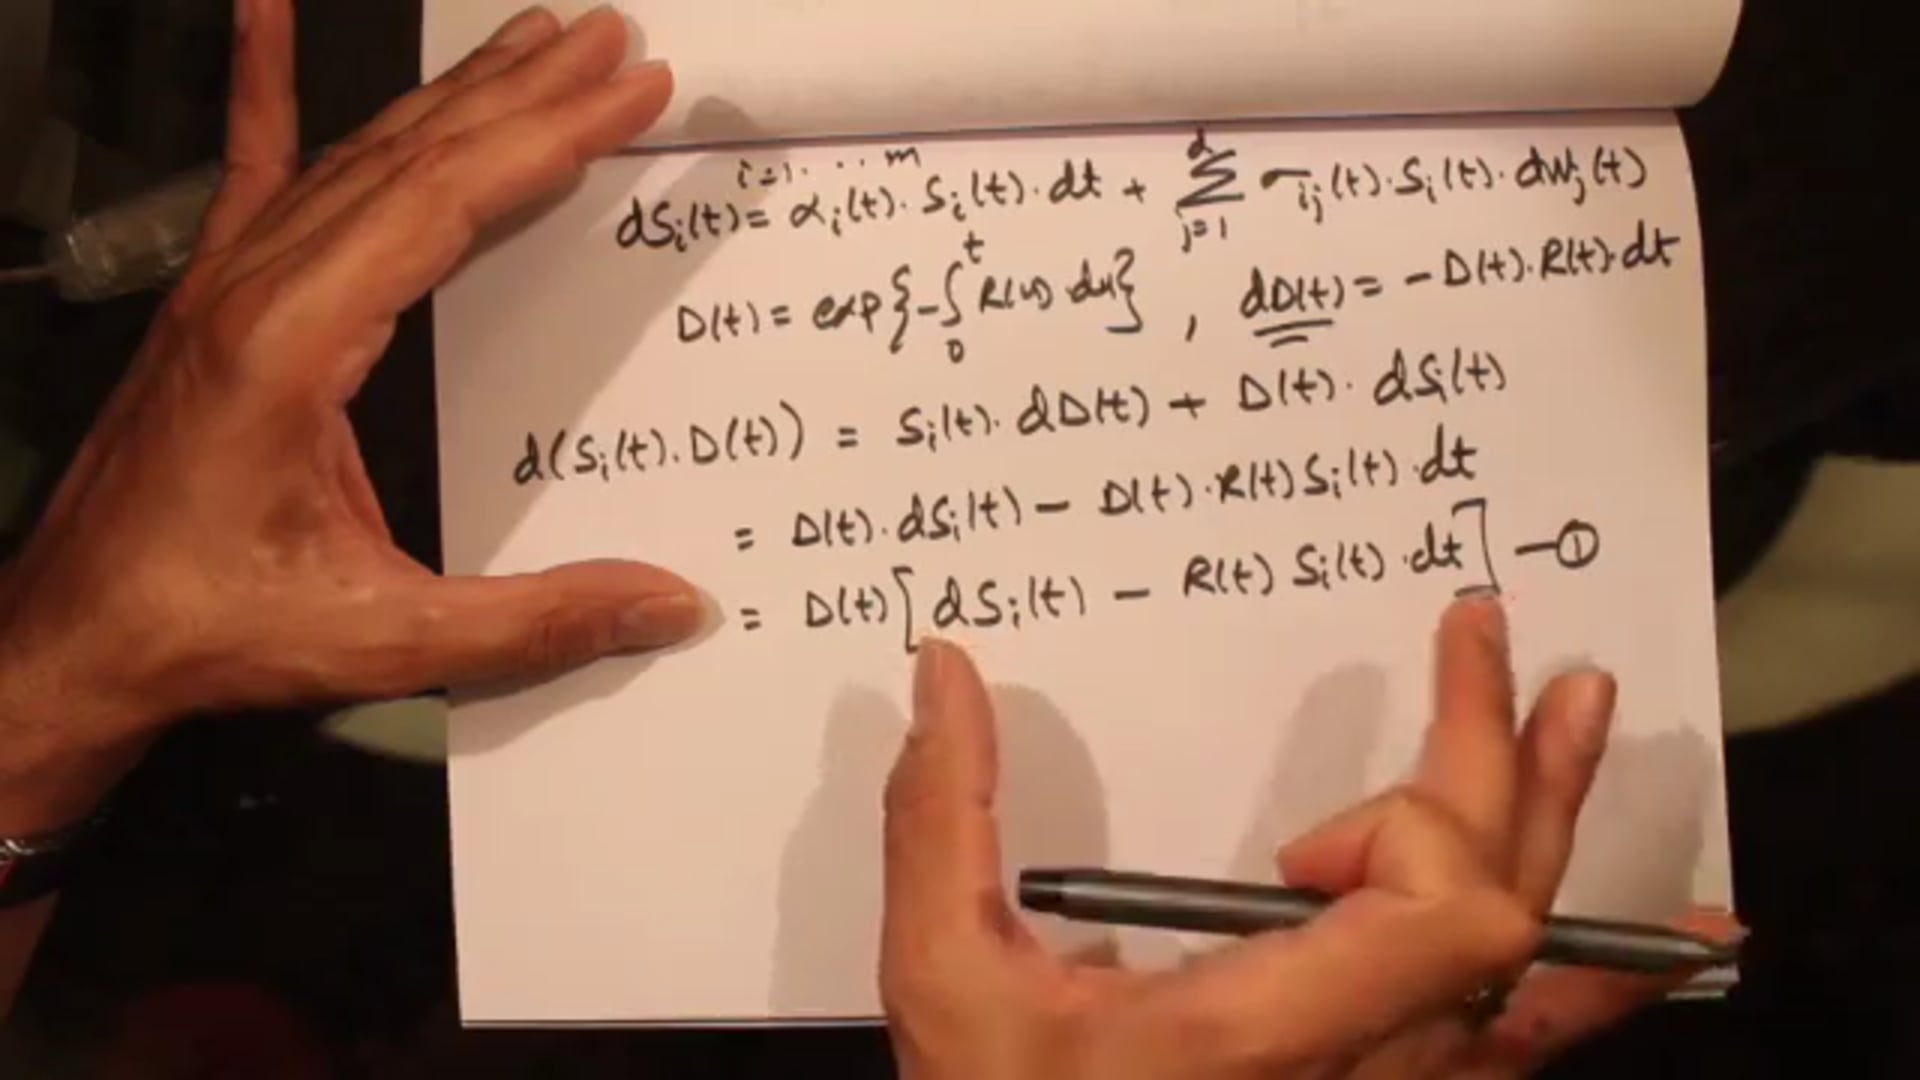 i=1. ... m
dSᵢ(t) = αᵢ(t)·Sᵢ(t)·dt + Σ_{j=1}^{d} σᵢⱼ(t)·Sᵢ(t)·dWⱼ(t)
D(t) = exp{-∫₀ᵗ R(u)·du} , dD(t) = -D(t)·R(t)·dt
d(Sᵢ(t)·D(t)) = Sᵢ(t)·dD(t) + D(t)·dSᵢ(t)
= D(t)·dSᵢ(t) - D(t)·R(t)Sᵢ(t)·dt
= D(t)[dSᵢ(t) - R(t) Sᵢ(t)·dt] —①